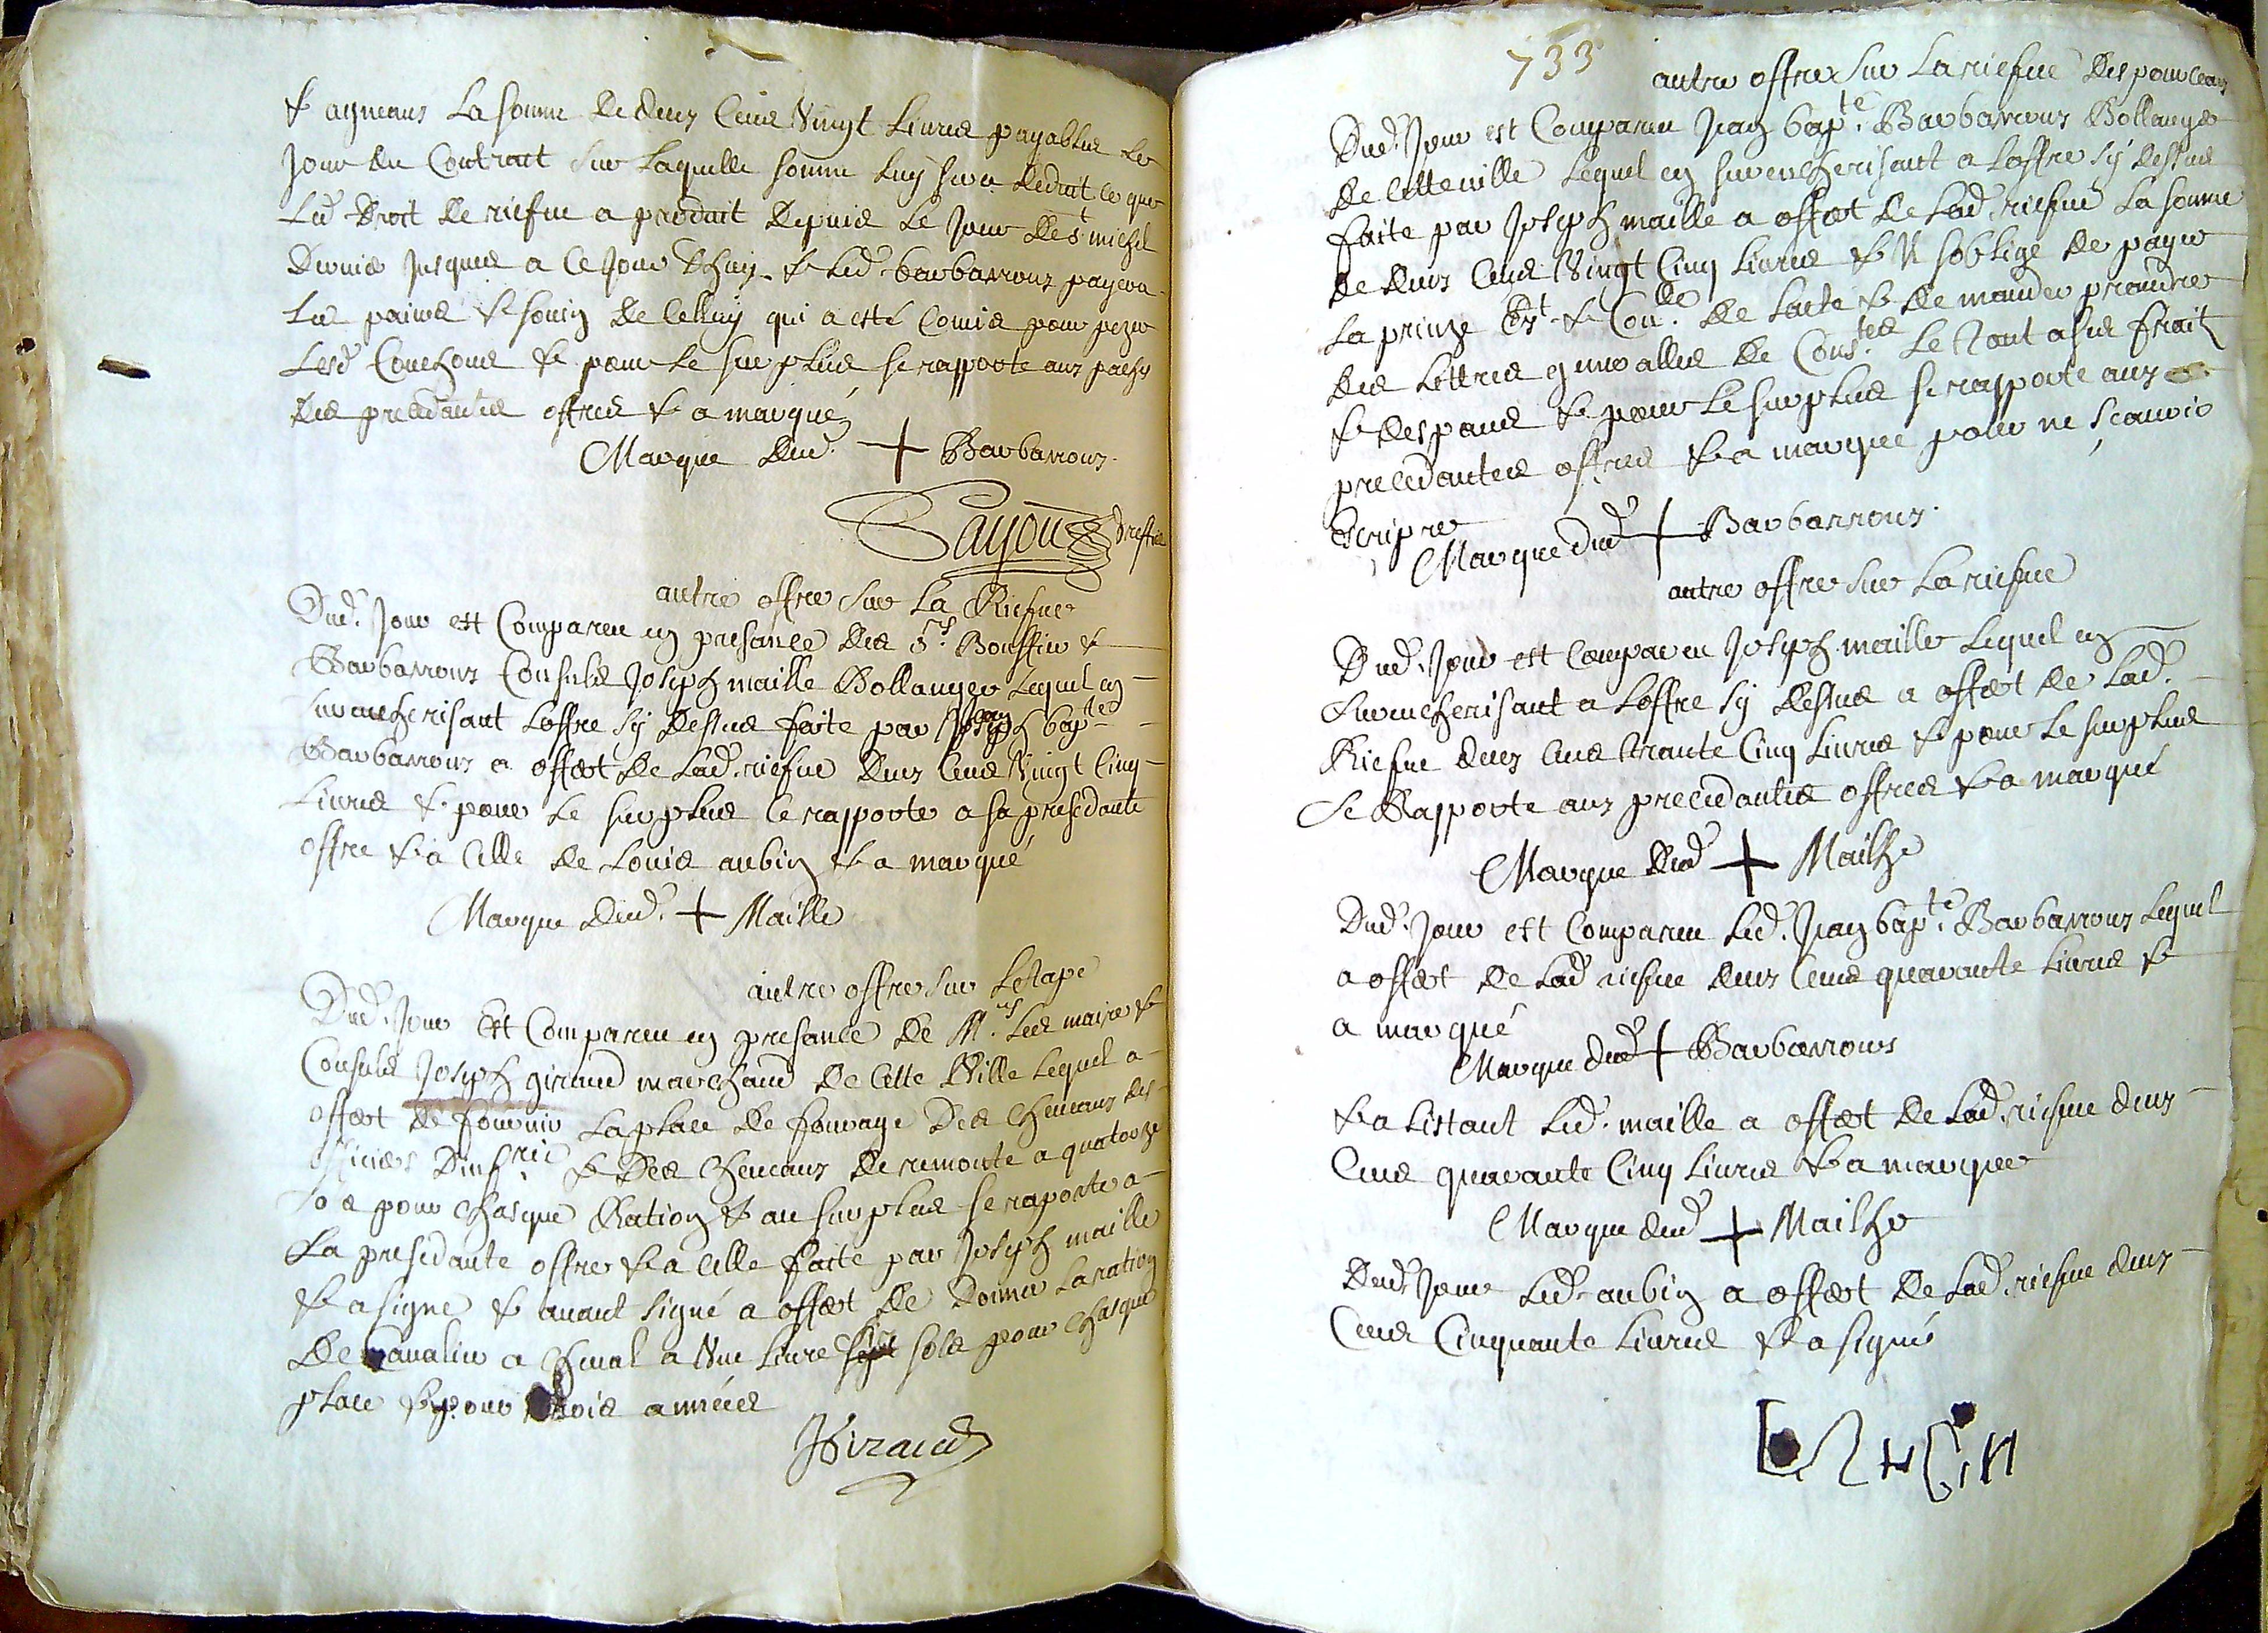 & agneaus La somme de deus Cens Vingt Livres payables le
Jour du Contract sur Laquelle somme Luy sera deduit ce que
Led. Droit de riefue a produit depuis Le Jour de St. michel
Dernier Jusques a ce Jour d'huy & Led. barbarrous payera
Les paines & souin de Celluy qui a esté Comis pour pezer
Lesd. Couchons & pour le surplus se rapporte aux pactes
des precedantes offres & a marqué
Marque dud. + Barbarrous
Sayou Greffier
autre offre sur La Riefue
Dud. Jour est Comparen en presance des Srs. Bouffier &
Barbarrous Consuls Joseph maille Bollanger Lequel en
surencherisant Loffre sy dessus faite par Jean baptes
Barbarrous a offert de Lad. riefue deus Cens Vingt Cinq
Livres & pour le surplus ce rapporte a sa presedante
offre & a Celle de Louis aubin & a marqué
Marque dud. + Maille
autre offre sur Letape
Dud. Jour est Comparen en presance de Mrs Les maire &
Consuls Joseph giraud marchand de Cette Ville Lequel a
offert de fournir La place de fourage des chevaus des
officiers Dinfrie & des chevaus de remonte a quatorze
so s pour chasque Ration & au surplus se raporte a
La presedante offre & a Celle faite par Joseph maille
& a signe & auant signé a offert de donner La ration
de Cavalier a cheual a Vne Liure sols pour chasque
place & pour trois années
JGiraud
733
autre offre sur La riefue des pourceaus
Dud. Jour est Comparen Jean bapte. Barbarrous Bollanger
de Cette ville Lequel en surencherisant a Loffre sy dessus
faite par Joseph maille a offert de Lad. riefue La somme
de deus Cens Vingt Cinq Livres & sobligé de payer
La prinze Ext. & Conde. de Lacte & de mander prandre
des Lettres de Constes. Le tout a ses fraitz
& despans & pour Le surplus se rapporte aux
precedantes offres & a marque pour ne scauoir
escripre
Marque dud + Barbarrous
autre offre sur La riefue
Dud. Jour est Comparen Joseph maille Lequel en
surencherisant a Loffre sy dessus a offert de Lad.
Riefue deus Cens trante Cinq Livres & pour Le surplus
se Rapporte aux precedantes offres & a marqué
Marque dud + Mailhe
Dud. Jour est Comparen Led. Jean bapte. Barbarrous Lequel
a offert de Lad riefue deus Cens quarante Livres &
a marqué
Marque dud + Barbarrous
& a Listant Led. maille a offert de Lad. riefue deus
Cens quarante Cinq Livres & a marque
Marque dud + Mailhe
Dud. Jour Led. aubin a offert de Lad. riefue deus
Cens Cinquante Livres & a signé